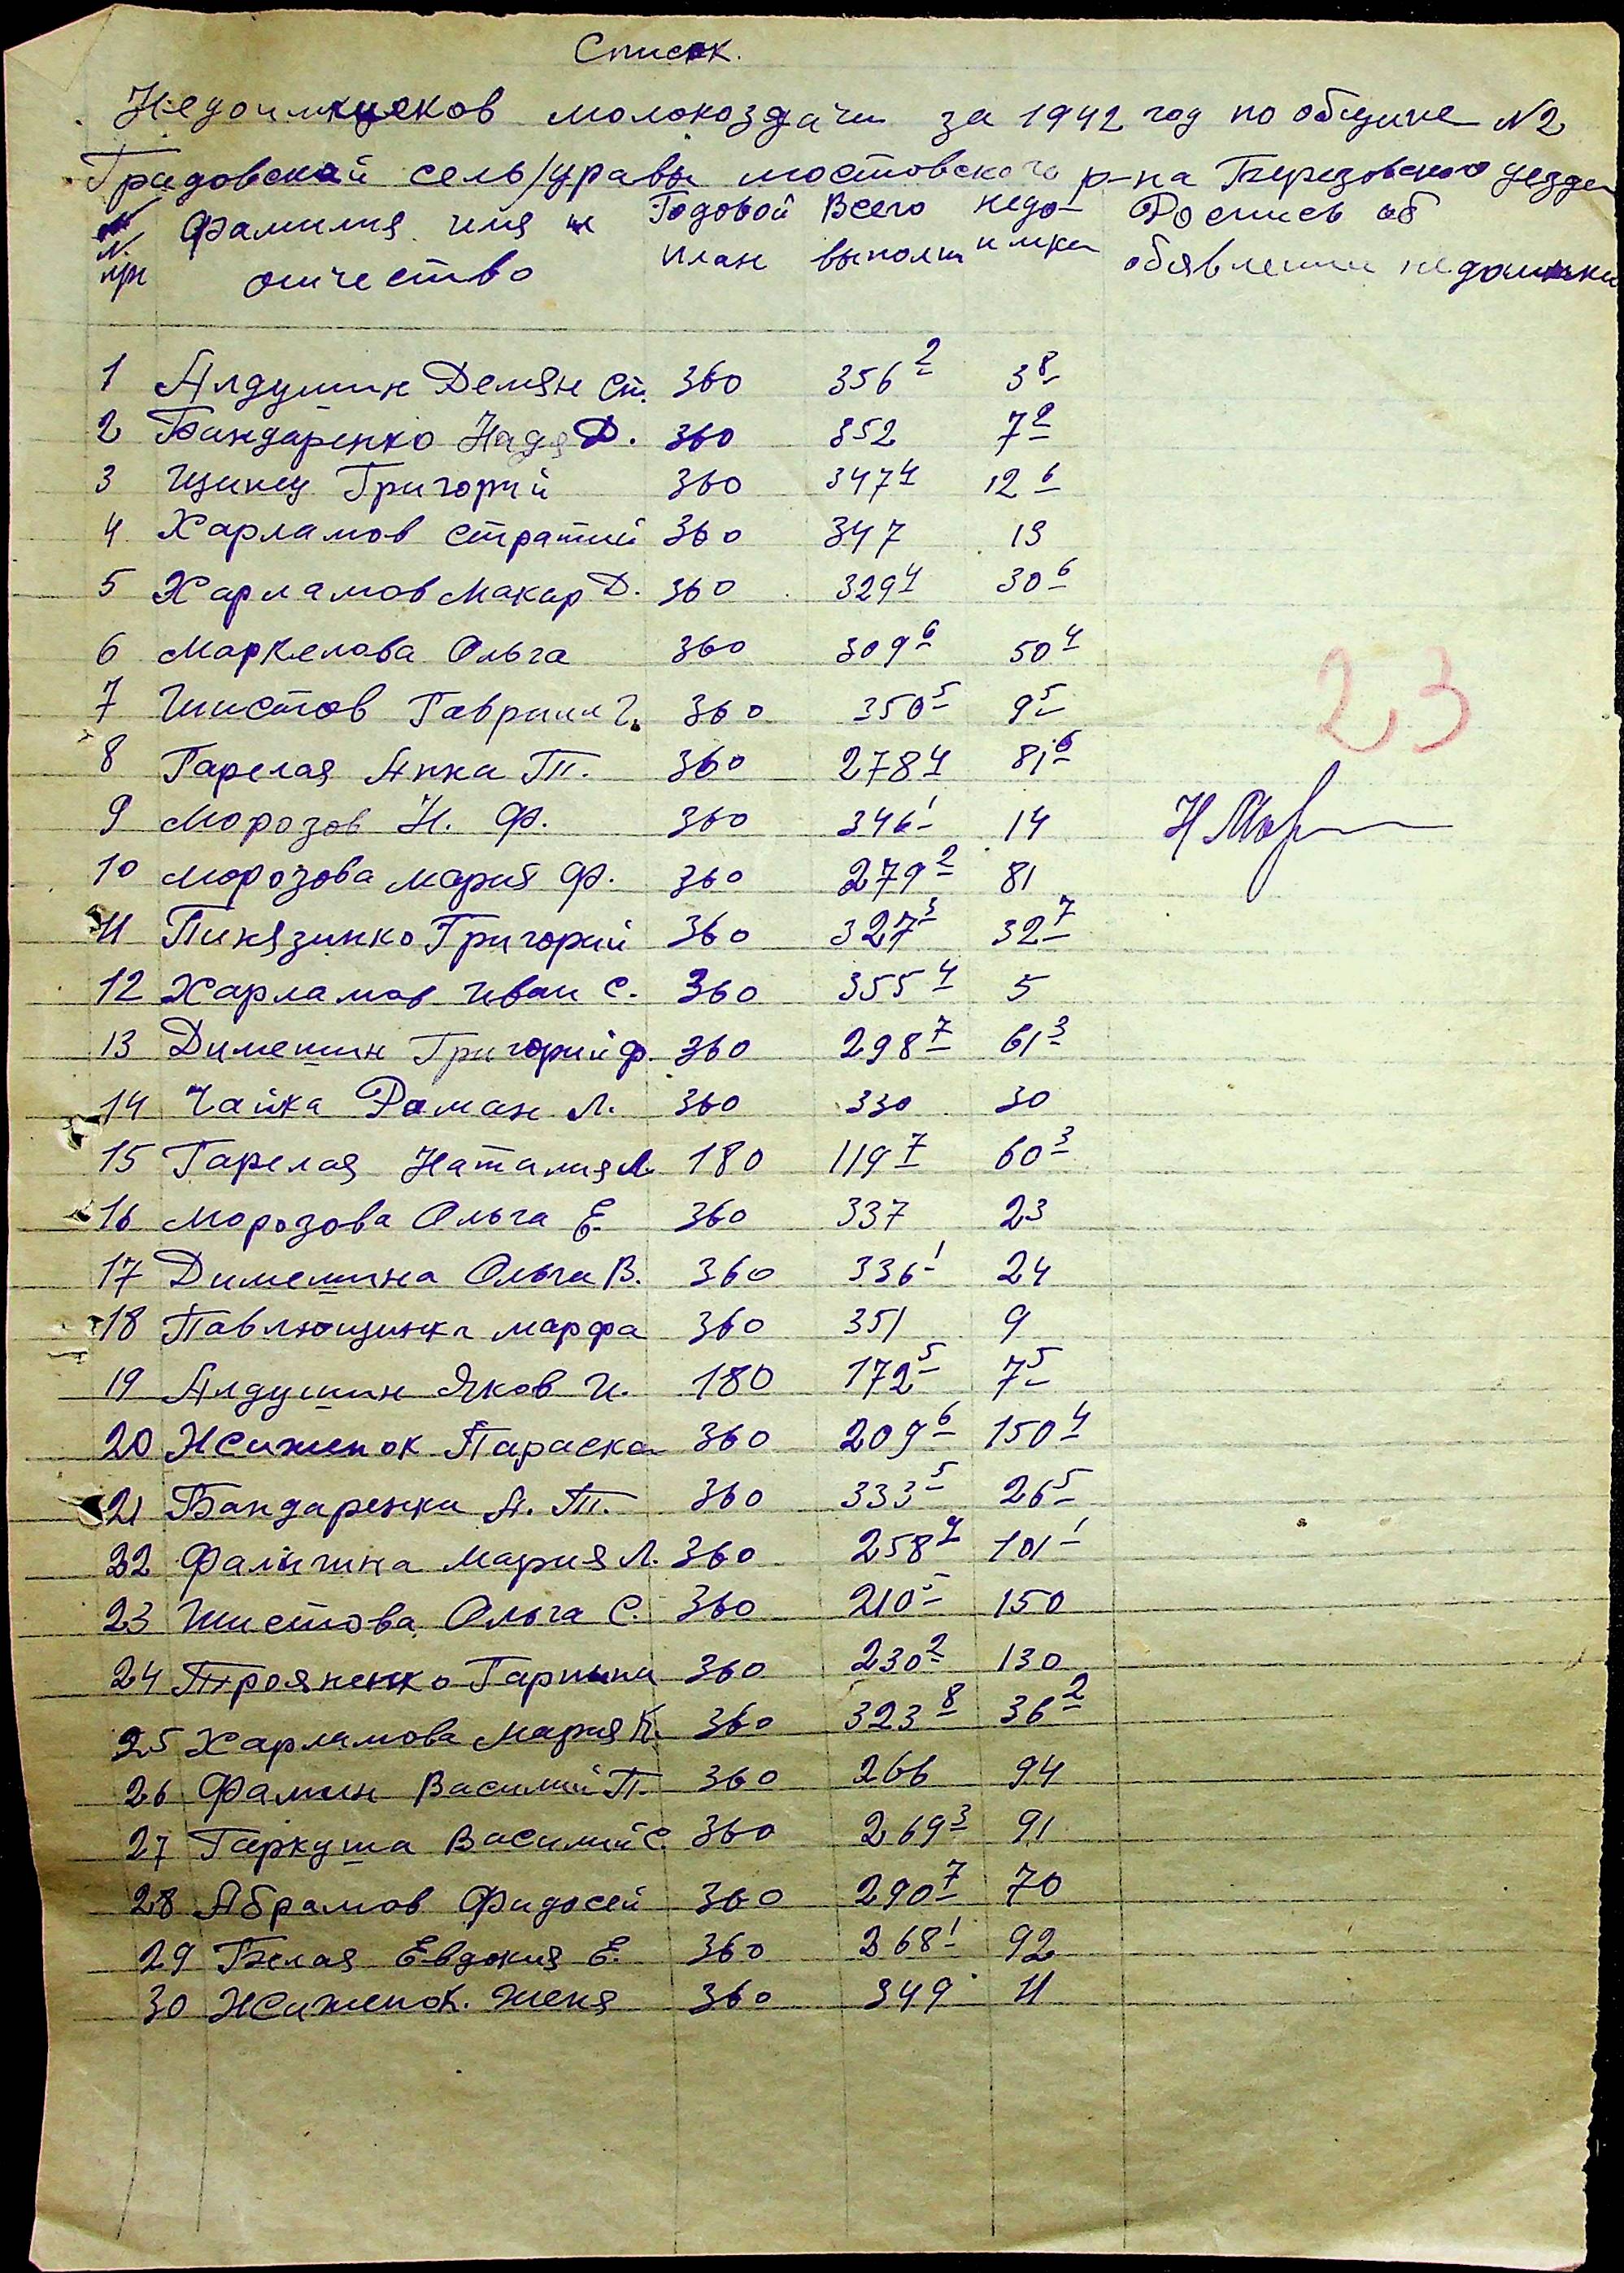 Список.
Недоимщиков молокоздачи за 1942 год по общине N2
Градовской сель/управы мостовского р-на Березовского уезда
N. Фамилия имя и Годовой Всего недо- Роспись об
п/п отчество план выполн имка обявлении недоимки
1 Алдушин Демян Ст. 360 356 2 3 8
2 Бандаренко Надя Д. 360 352 7 9
3 Щинец Григорий 360 347 4 12 6
4 Харламов Стратий 360 347 13
5 Харламов Макар Д. 360 329 4 30 6
6 Маркелова Ольга 360 309 6 50 4
7 Шистов Гавриил Г. 360 350 5 9 5
8 Гарелая Анна Т. 360 278 4 81 6
23
9 Морозов Н. Ф. 360 346 1 14 Н Мор
10 Морозова Мария Ф. 360 279 2 81
11 Пинязинко Григорий 360 327 3 32 7
12 Харламов Иван С. 360 355 4 5
13 Димешин Григорий Ф. 360 298 7 61 3
14 Чайка Раман Л. 360 330 30
15 Гарелая Наталия Л. 180 119 7 60 3
16 Морозова Ольга Е. 360 337 23
17 Димешина Ольга В. 360 336 1 24
18 Павлющинка Марфа 360 351 9
19 Алдушин Яков И. 180 172 5 7 5
20 Жиженок Параска 360 209 6 150 4
21 Бандаренки А. Т. 360 333 5 26 5
22 Мария Л. 360 258 9 101 1
23 Шистова Ольга С. 360 210 5 150
24 Трояненко Гарпина 360 230 2 130
25 Харламова Мария К. 360 323 8 36 2
26 Фамин Василий П. 360 266 94
27 Гаркуша Василий С. 360 269 3 91
28 Абрамов Фидосей 360 290 7 70
29 Белая Евдокия Е. 360 268 1 92
30 Жиженок. Женя 360 349 11